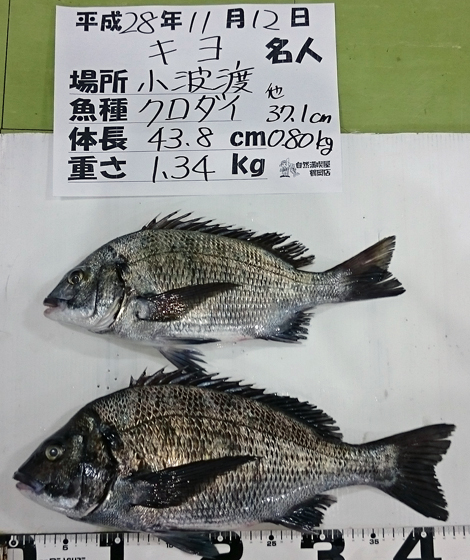 平成28年11月12日
キヨ 名人
場所 小波渡
魚種 クロダイ 他 37.1cm
体長 43.8 cm 0.80kg
重さ 1.34 kg
自然満喫屋
鶴岡店
5 15 25 35
1 2 3 4